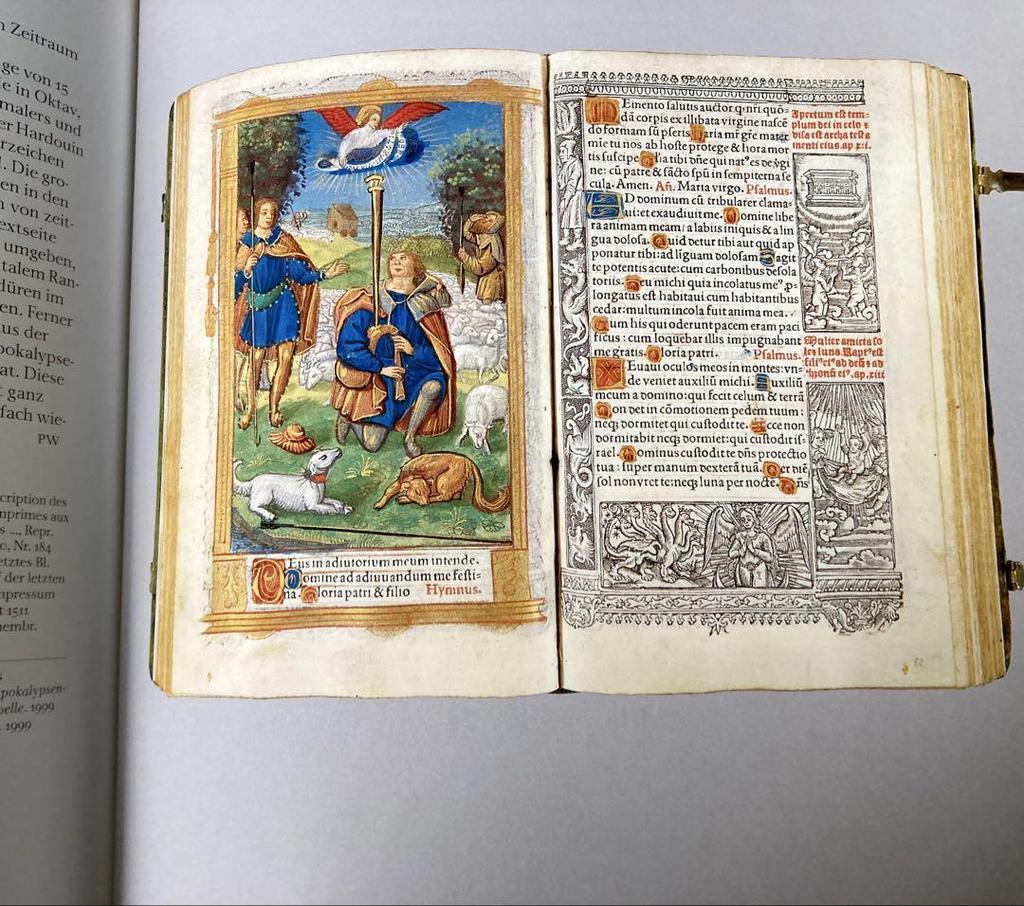 n Zeitraum
ge von 15
e in Oktav,
malers und
er Hardouin
rzeichen
l. Die gro-
en in den
n von zeit-
extseite
umgeben,
talem Ran-
düren im
en. Ferner
us der
pokalypse-
at. Diese
t ganz
fach wie-
PW
cription des
mprimés aux
s ..., Repr.
o, Nr. 184
etztes Bl.
f der letzten
mpressum
t 1511
nembr.
s
pokalypsen-
pelle. 1999
. 1999
Eus in adiutorium meum intende.
Domine ad adiuuandum me festi-
na. Gloria patri & filio Hymnus.
Memento salutis auctor q̃ nr̃i quõ-
dã corpis ex illibata virgine nascẽ
do formam sũ pseris. Maria mr̃ gr̃e mater
mie tu nos ab hoste protege & hora mor
tis suscipe. Gl'a tibi dñe qui nat'es de v̾gi
ne: cũ patre & sãcto spũ in sempiterna se
cula. Amen. Añ. Maria virgo. Psalmus.
AD dominum cũ tribularer clama-
ui: et exaudiuit me. Domine libe
ra animam meam / a labiis iniquis & a lin
gua dolosa. Quid detur tibi aut quid ap
ponatur tibi: ad liguam dolosam Sagit
te potentis acute: cum carbonibus desola
toriis. Heu michi quia incolatus me' p̱-
longatus est habitaui cum habitantibus
cedar: multum incola fuit anima mea.
Cum his qui oderunt pacem eram paci
ficus: cum loquebar illis impugnabant
me gratis. Gloria patri. Psalmus.
LEuaui oculos meos in montes: vn-
de veniet auxiliũ michi. Auxiliũ
meum a domino: qui fecit celum & terrã
Non det in cõmotionem pedem tuum:
neq; dormitet qui custodit te. Ecce non
dormitabit neq; dormiet: qui custodit is-
rael. Dominus custodit te dñs protectio
tua: super manum dexterã tuã. Per diẽ
sol non vret te: neq; luna per nocte. Dñs
Apertum est tem-
plum dei in celo &
visa est archa testa
menti eius. ap. xii.
Mulier amicta so
le & luna. Rapt' est
fili' ei' ad deũ & ad
thronũ ei'. ap. xiii
52